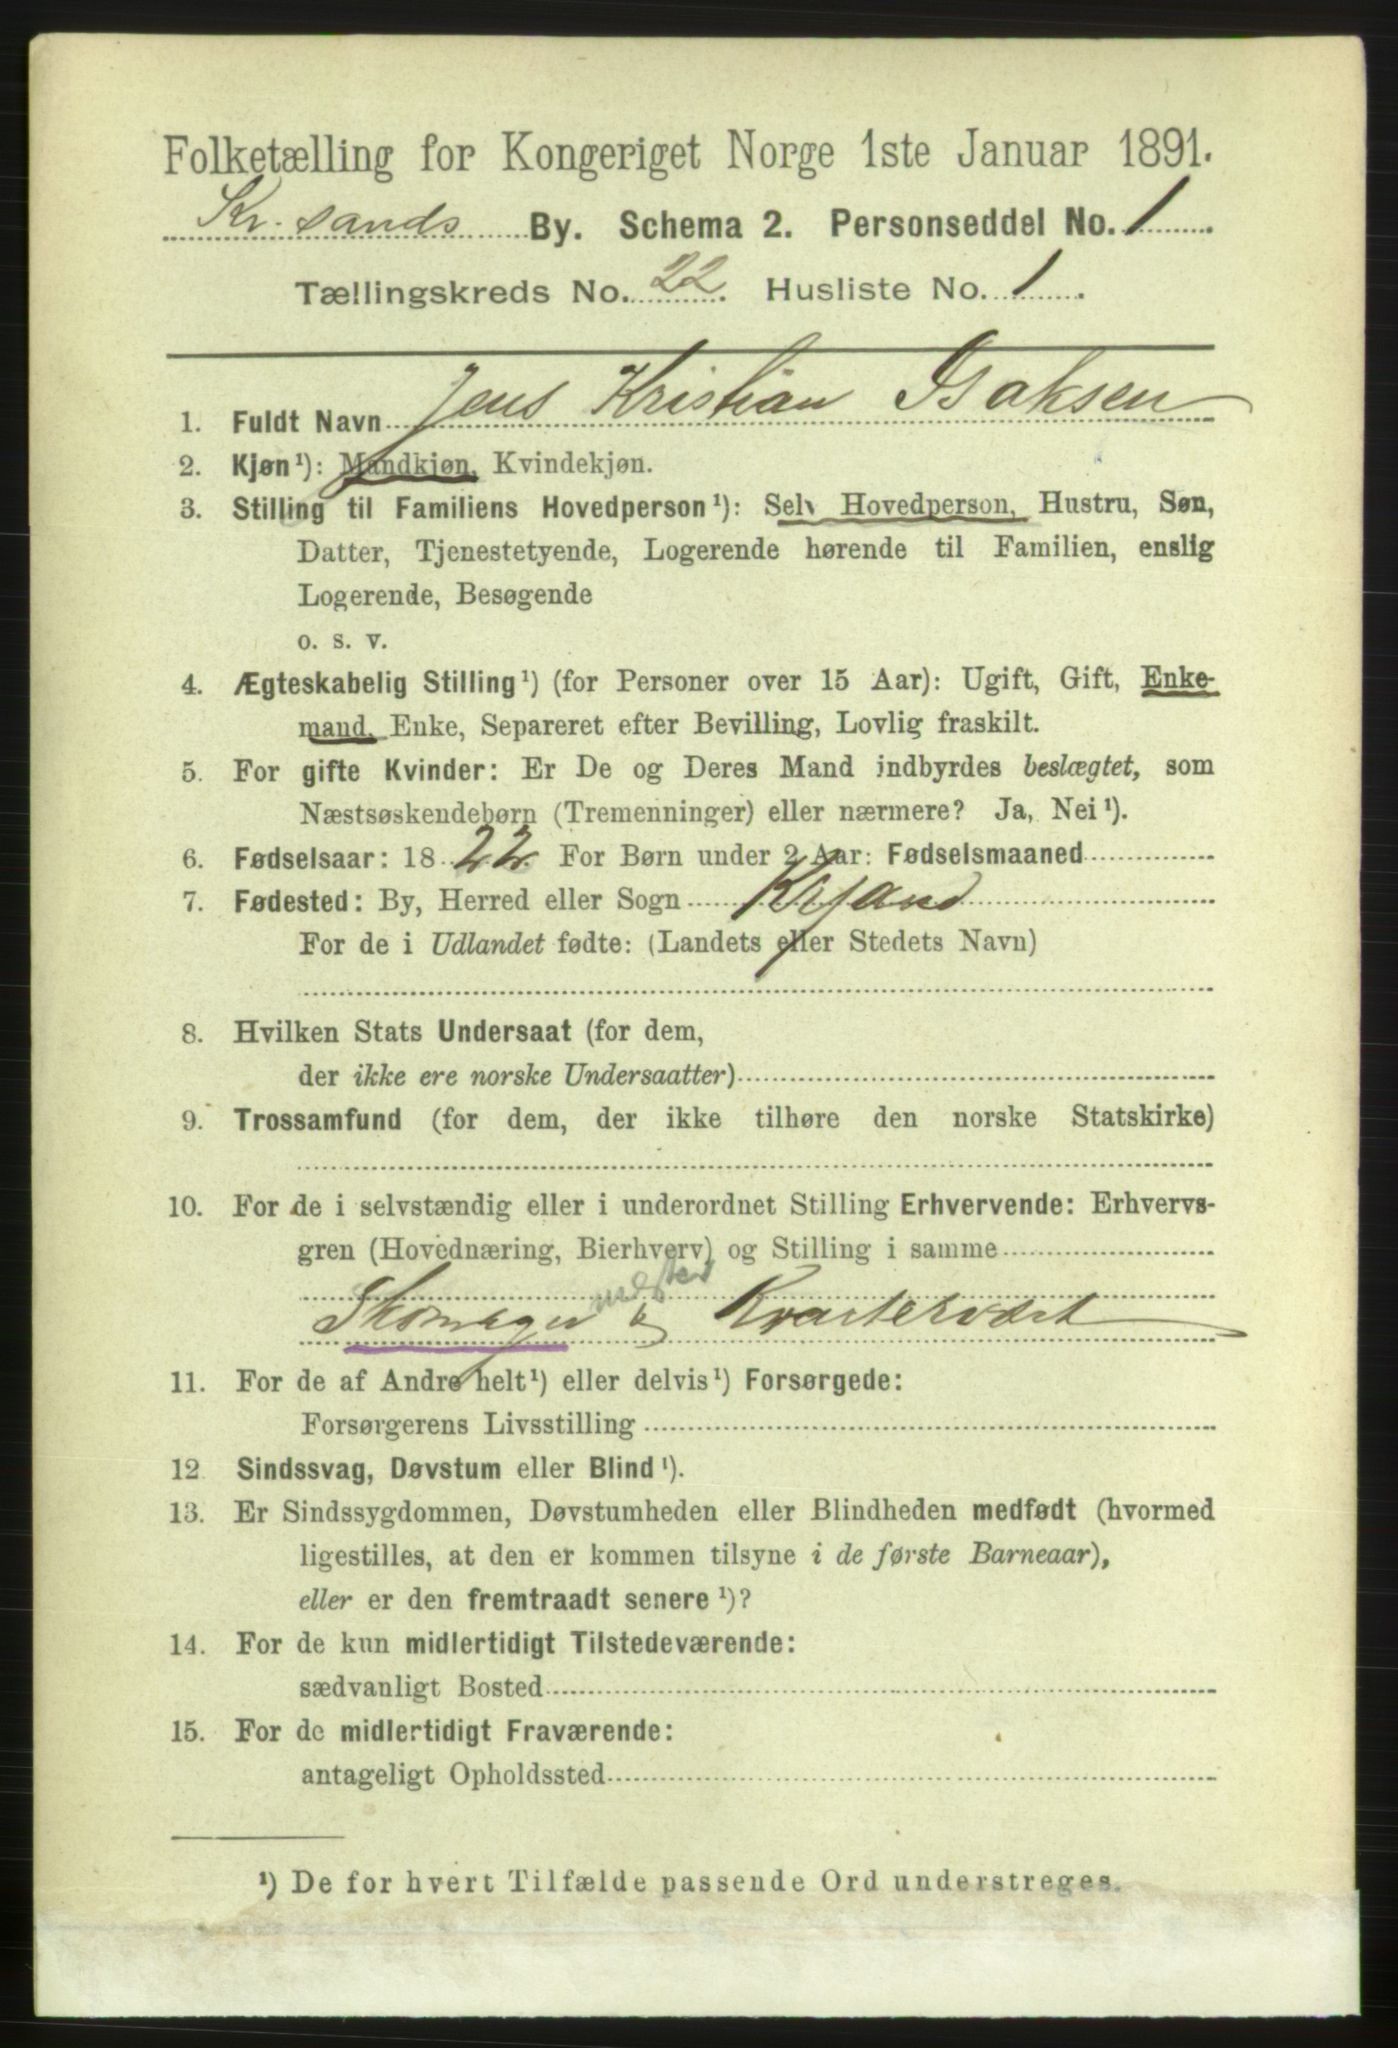 Folketælling for Kongeriget Norge 1ste Januar 1891.
Kr. sands By. Schema 2. Personseddel No. 1
Tællingskreds No. 22. Husliste No. 1.
1. Fuldt Navn Jens Kristian Isaksen
2. Kjøn¹): Mandkjøn, Kvindekjøn.
3. Stilling til Familiens Hovedperson¹): Selv Hovedperson, Hustru, Søn,
Datter, Tjenestetyende, Logerende hørende til Familien, enslig
Logerende, Besøgende
o. s. v.
4. Ægteskabelig Stilling¹) (for Personer over 15 Aar): Ugift, Gift, Enke-
mand, Enke, Separeret efter Bevilling, Lovlig fraskilt.
5. For gifte Kvinder: Er De og Deres Mand indbyrdes beslægtet, som
Næstsøskendebørn (Tremenninger) eller nærmere? Ja, Nei¹).
6. Fødselsaar: 1822. For Børn under 2 Aar: Fødselsmaaned
7. Fødested: By, Herred eller Sogn Krsand
For de i Udlandet fødte: (Landets eller Stedets Navn)
8. Hvilken Stats Undersaat (for dem,
der ikke ere norske Undersaatter)
9. Trossamfund (for dem, der ikke tilhøre den norske Statskirke)
10. For de i selvstændig eller i underordnet Stilling Erhvervende: Erhvervs-
gren (Hovednæring, Bierhverv) og Stilling i samme
mester
Skomager & Kvartervært
11. For de af Andre helt¹) eller delvis¹) Forsørgede:
Forsørgerens Livsstilling
12 Sindssvag, Døvstum eller Blind¹).
13. Er Sindssygdommen, Døvstumheden eller Blindheden medfødt (hvormed
ligestilles, at den er kommen tilsyne i de første Barneaar),
eller er den fremtraadt senere¹)?
14. For de kun midlertidigt Tilstedeværende:
sædvanligt Bosted
15. For de midlertidigt Fraværende:
antageligt Opholdssted
¹) De for hvert Tilfælde passende Ord understreges.